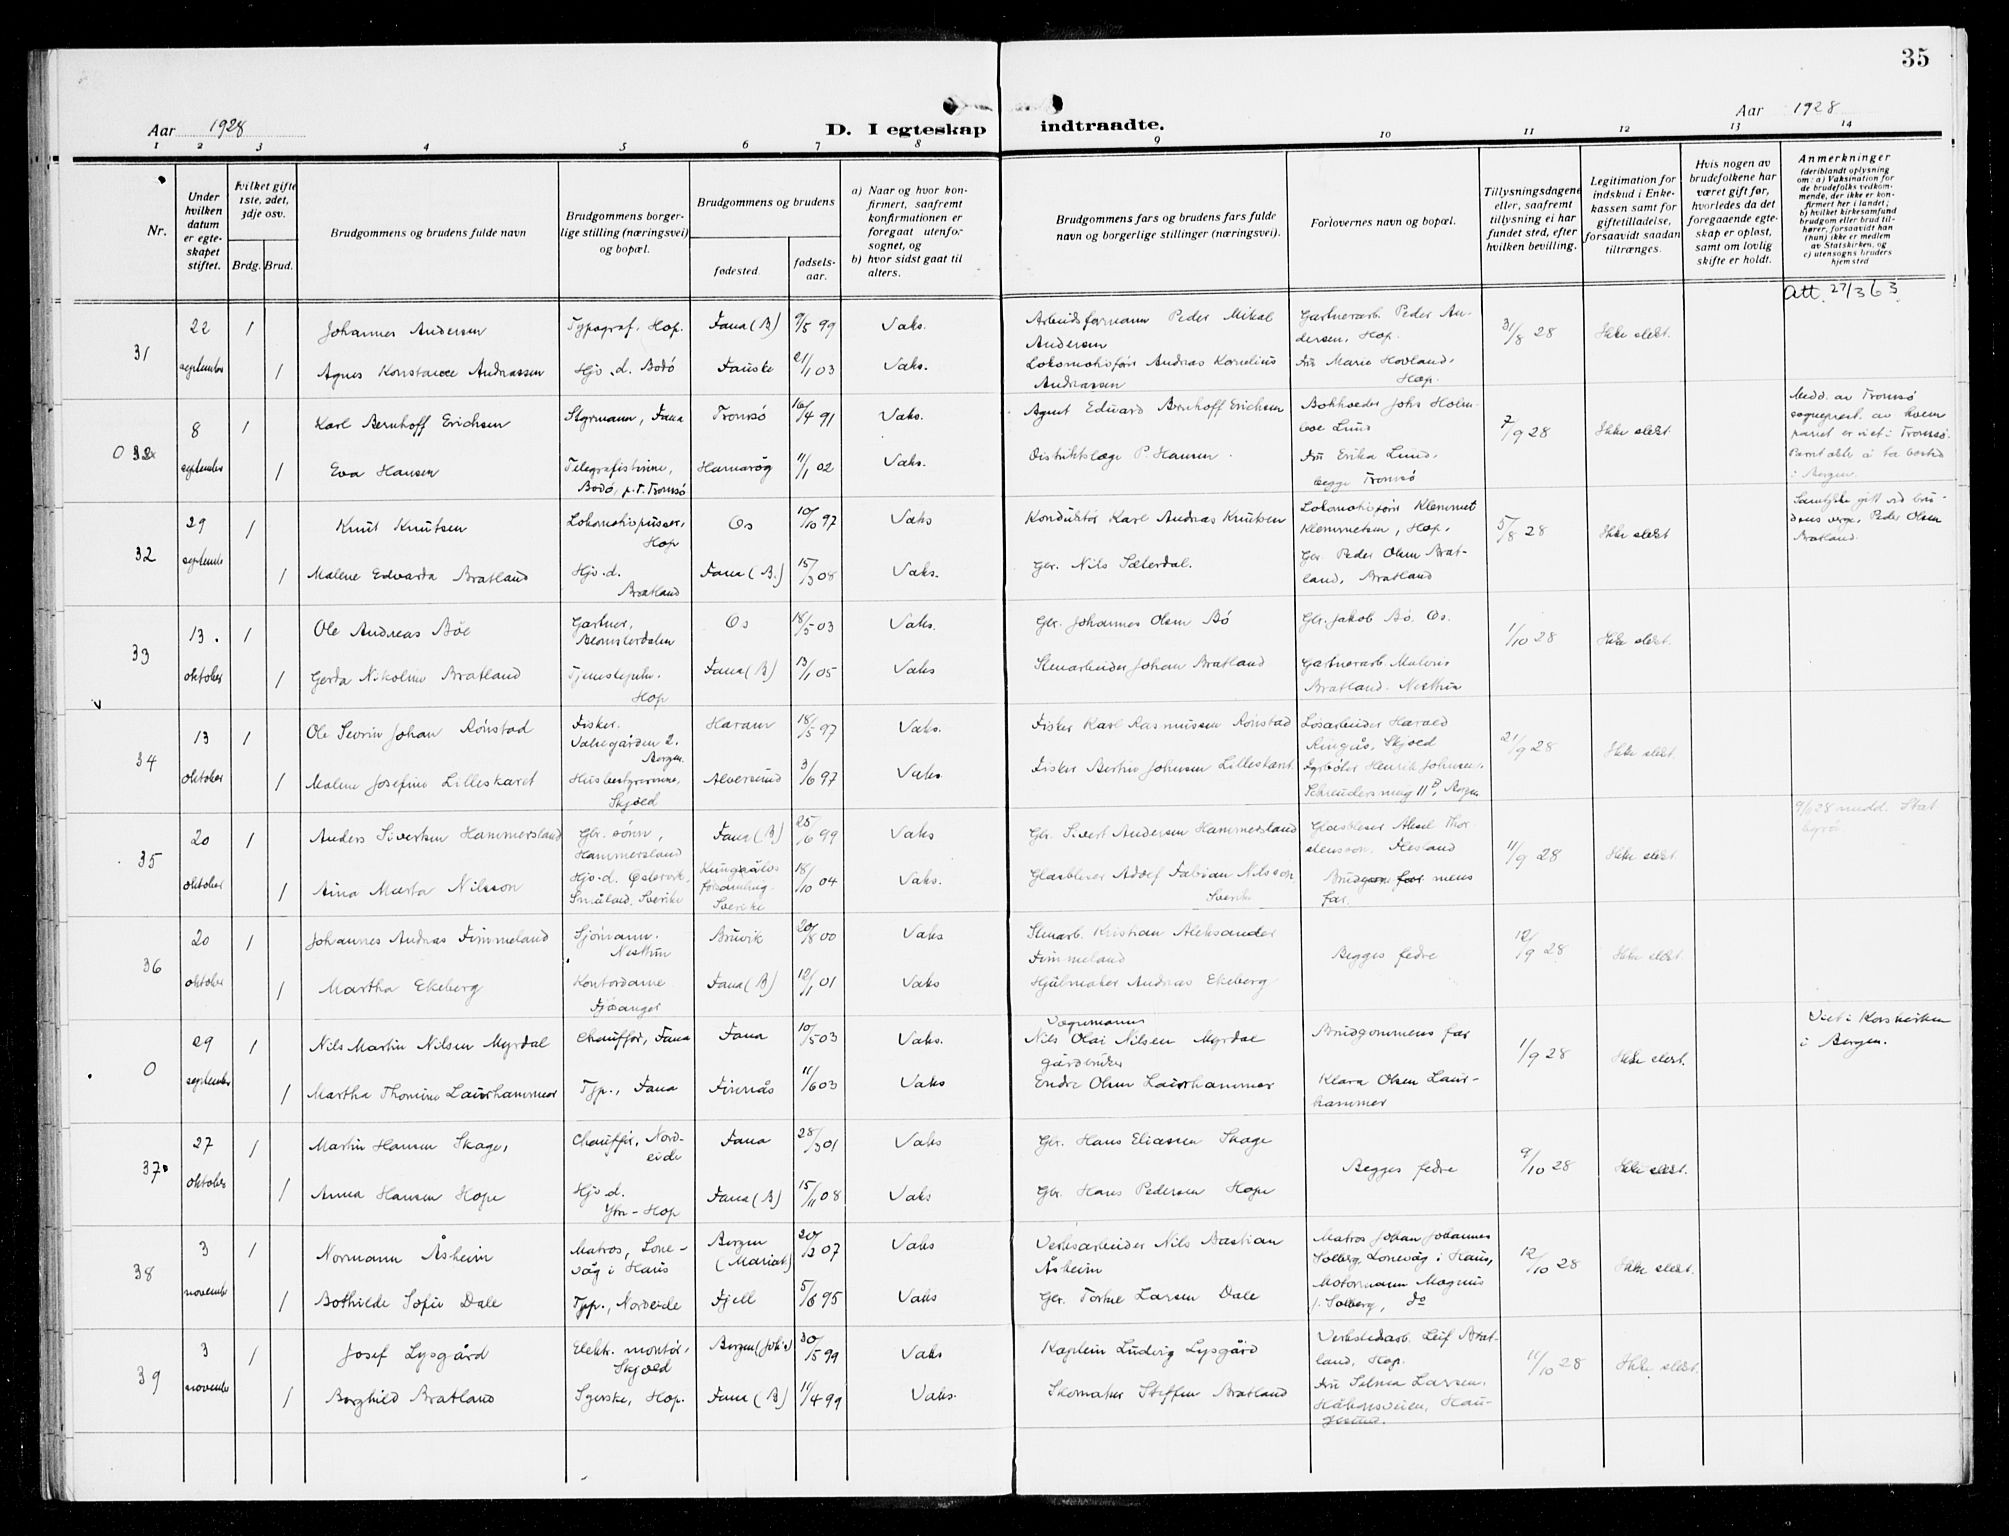 35
Aar 1928
D. I egteskap indtraadte.
Aar 1928
1 2 3 4 5 6 7 8 9 10 11 12 13 14
Nr.
Under hvilken datum er egteskapet stiftet.
hvilket gifte 1ste, 2det, 3dje osv.
Brdg. Brud.
Brudgommens og brudens fulde navn
Brudgommens borgerlige stilling (næringsvei) og bopæl.
Brudgommens og brudens
fødested.
fødselsaar.
a) Naar og hvor konfirmert, saafremt konfirmationen er foregaat utenfor sognet, og
b) hvor sidst gaat til alters.
Brudgommens fars og brudens fars fulde navn og borgerlige stillinger (næringsvei).
Forlovernes navn og bopæl.
Tillysningsdagene eller, saafremt tillysning ei har fundet sted, efter hvilken bevilling.
Legitimation for indskud i Enkekassen samt for giftetilladelse, forsaavidt saadan tiltrænges.
Hvis nogen av brudefolkene har været gift før, hvorledes da det foregaaende egteskap er opløst, samt om lovlig skifte er holdt.
Anmerkninger (deriblandt oplysning om: a) Vaksination for de brudefolks vedkommende, der ikke er konfirmert her i landet; b) hvilket kirkesamfund brudgom eller brud tilhører, forsaavidt han (hun) ikke er medlem av Statskirken, og c) utensogns bruders hjemsted
Att. 27/3 63.
31 22 september 1 Johannes Andersen Typograf, Hop. Fana (B) 9/5 99 Vaks. Arbeidsformann Peder Mikal Andersen Gartnerarb. Peder Andersen, Hop. 31/8 28 Ikke slekt.
1 Agnes Konstance Andreassen Hjv. d. Bodö Fauske 21/1 03 Vaks. Lokomotivförer Andreas Kornelius Andreassen Fru Marie Hovland, Hop.
0 8 september 1 Karl Bernhoff Erichsen Styrmann, Fana Tromsö 16/4 91 Vaks. Agent Edvard Bernhoff Erichsen Bokholder Johs Holmboe Lund 7/9 28 Ikke slekt Medd. av Tromsö sogneprest. av hvem paret er viet i Tromsö. Paret akter å ta bosted i Bergen.
1 Eva Hansen Telegrafistinne, Bodö, p.t. Tromsö Hamarög 11/1 02 Vaks. Distriktslæge P. Hansen. Fru Erika Lund, begge Tromsö
32 29 september 1 Knut Knutsen Lokomotivpusser, Hop Os 10/10 97 Vaks Konduktör Karl Andreas Knutsen Lokomotivförer Klemmet Klemmetsen, Hop. 5/8 28 Ikke slekt Samtykke gitt ved brudens verge, Peder Olsen Bratland.
1 Malene Edvarda Bratland Hjv. d. Bratland Fana (B.) 15/3 08 Vaks. Gbr. Nils Sæterdal. Gbr. Peder Olsen Bratland, Bratland
33 13. oktober 1 Ole Andreas Böe Gartner, Blomsterdalen Os 18/5 03 Vaks. Gbr. Johannes Olsen Bö Gbr. Jakob Bö. Os. 1/10 28 Ikke slekt.
1 Gerda Nikoline Bratland Tjenestepike. Hop Fana (B) 13/1 05 Vaks Stenarbeider Johan Bratland Gartnerarb. Bratland. Nesttun
34 13 oktober 1 Ole Severin Johan Rönstad Fisker. Valsegården 2. Bergen Haram 18/5 97 Vaks. Fisker Karl Rasmussen Rönstad Lösarbeider Harald Skjold 21/9 28 Ikke slekt.
1 Malene Josefine Lilleskaret Husbestyrerinne, Skjold Alversund 3/6 97 Vaks Fisker Bertin Johnsen Lilleskaret Fyrböter Henrik Johnsen, 11 B, Bergen
35 20 oktober 1 Anders Sivertsen Hammersland Gbr. sönn, Hammersland Fana (B) 25/6 99 Vaks Gbr. Sivert Andersen Hammersland Glasbleser Aksel Thorstensson. Flesland 11/9 28 Ikke slekt. medd. Stat byrå
1 Aina Marta Nilsson Hjv. d. Småland, Sverike Sverike 18/10 04 Vaks. Glasbleser Adolf Fabian Nilsson. Sverike far
36 20 oktober 1 Johannes Andreas Fimmeland Sjömann. Nesttun Bruvik 20/8 00 Vaks Stenarb. Kristian Aleksander Fimmeland Begges fedre 12/9 28 Ikke slekt.
1 Martha Ekeberg Kontordame Fjösanger Fana (B) 12/1 01 Vaks Hjulmaker Andreas Ekeberg
0 29 september 1 Nils Martin Nilsen Myrdal Chaufför, Fana Fana 10/5 03 Vaks. Vognmann Nils Olai Nilsen Myrdal Brudgommens far 11/9 28 Ikke slekt. Viet i Korskirken i Bergen.
1 Martha Thomine Laurhammer Tjp., Fana Finnås 11/6 03 Vaks Endre Olsen Laurhammer Klara Olsen Laurhammer
37 27 oktober 1 Martin Hansen Skage, Chaufför, Nordeide Fana 28/3 01 Vaks Gbr. Hans Eliassen Skage Begges fedre 9/10 28 Ikke slekt.
1 Anna Hansen Hope Hjv. d. Ytre-Hop Fana (B) 15/11 08 Vaks Gbr. Hans Pedersen Hope
38 3 november 1 Normann Åsheim Matros, Lonevåg i Haus Bergen (Mariak) 20/3 07 Vaks Verksarbeider Nils Bastian Åsheim Matros Johan Johannes Solberg, Lonevåg i Haus, 12/10 28 Ikke slekt.
1 Bothilde Sofie Dale Tjp., Nordeide Fjell 5/6 95 Vaks Gbr. Torkel Larsen Dale Motormann Magnus J. Solberg, do
39 3 november 1 Josef Lysgård Elektr. montör, Skjold Bergen (Joh.) 30/5 99 Vaks Kaptein Ludvig Lysgård Verkstedarb. Leif Bratland, Hop. 11/10 28 Ikke slekt.
1 Borghild Bratland Syerske, Hop. Fana (B) 11/4 99 Vaks. Skomaker Steffen Bratland Fru Selma Larsen. Håkonsveien, Haugesund.